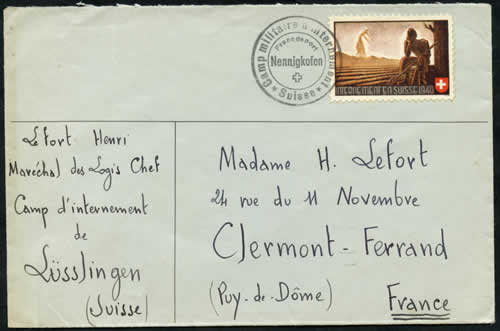 Camp militaire d'internement
Franc de port
Nennigkofen
Suisse
INTERNEMENT EN SUISSE 1940
Lefort Henri
Maréchal des Logis Chef
Camp d'internement
de
Lüsslingen
(Suisse)
Madame H. Lefort
24 rue du 11 Novembre
Clermont-Ferrand
(Puy-de-Dôme)
France